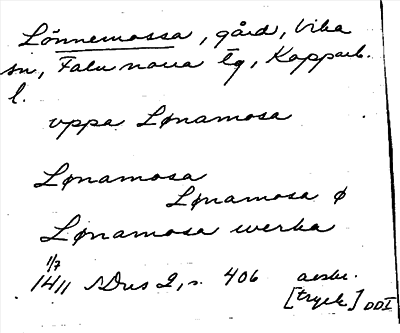 Lönnemossa, gård, Vika
sn, Falu norra tg, Kopparb.
l.
vppa Lønamosa
Lønamosa
Lønamosa ø
Lønamosa werka
1/7
1411 SDns 2, s. 406 avskr.
[tryck] DDI